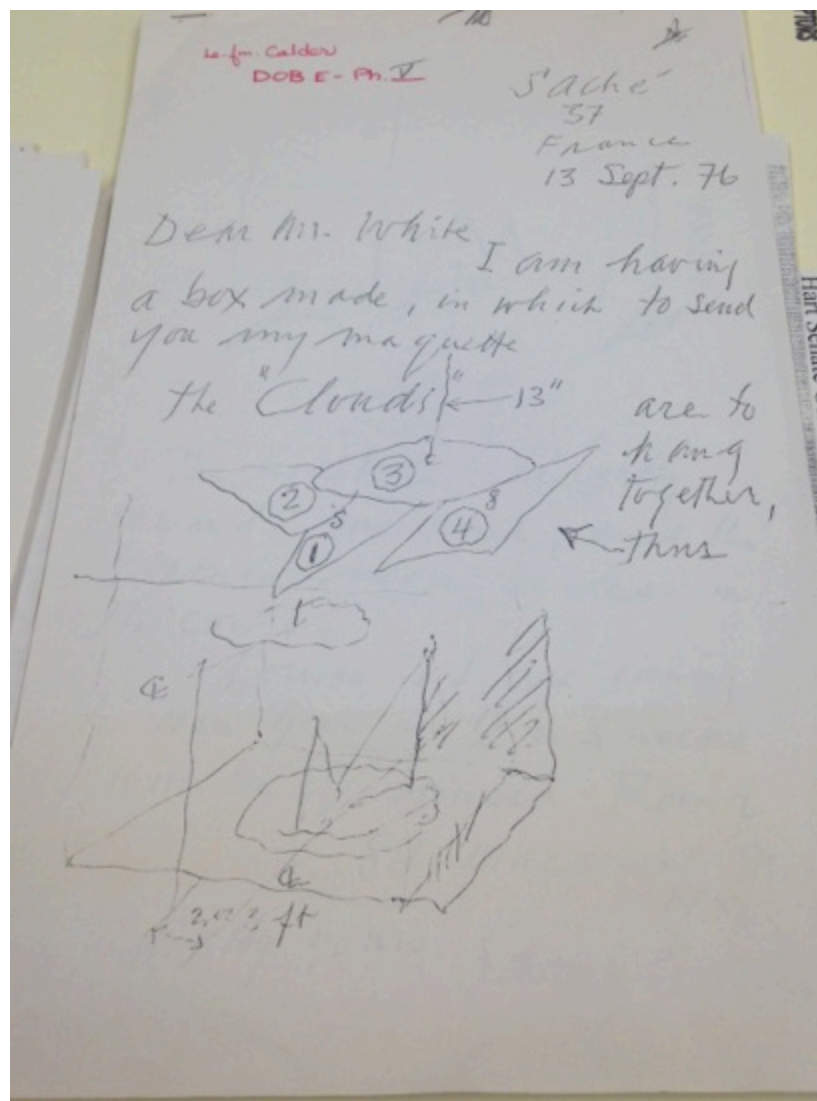 Le. fm. Calder
DOB E - Ph. V
Saché
37
France
13 Sept. 76
Dear Mr. White
I am having
a box made, in which to send
you my maquette
the "Clouds" 13" are to
hang
together,
thus
3
2
5
8
1
4
℄
℄
ft
Hart Senate